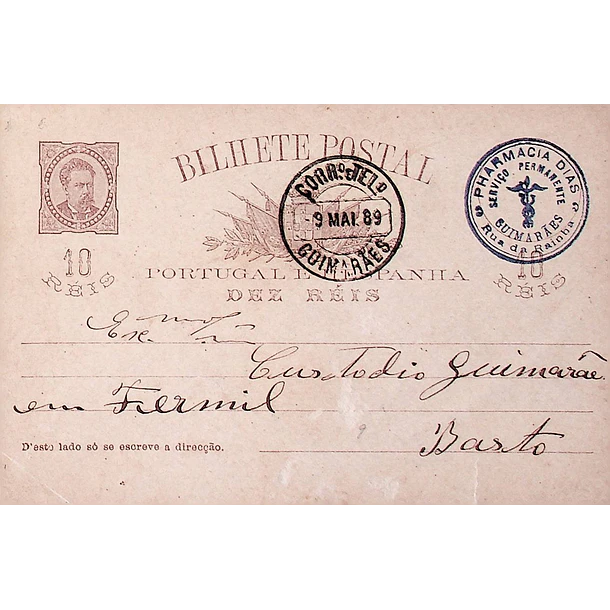 BILHETE POSTAL
CORRº. TELº.
9 MAI. 89
GUIMARÃES
PHARMACIA DIAS
SERVIÇO PERMANENTE
GUIMARÃES
Rua da Rainha
10
RÉIS
10
RÉIS
PORTUGAL E HESPANHA
DEZ RÉIS
Exmo Snr
Custodio Guimarães
em Fermil
Basto
D'este lado só se escreve a direcção.